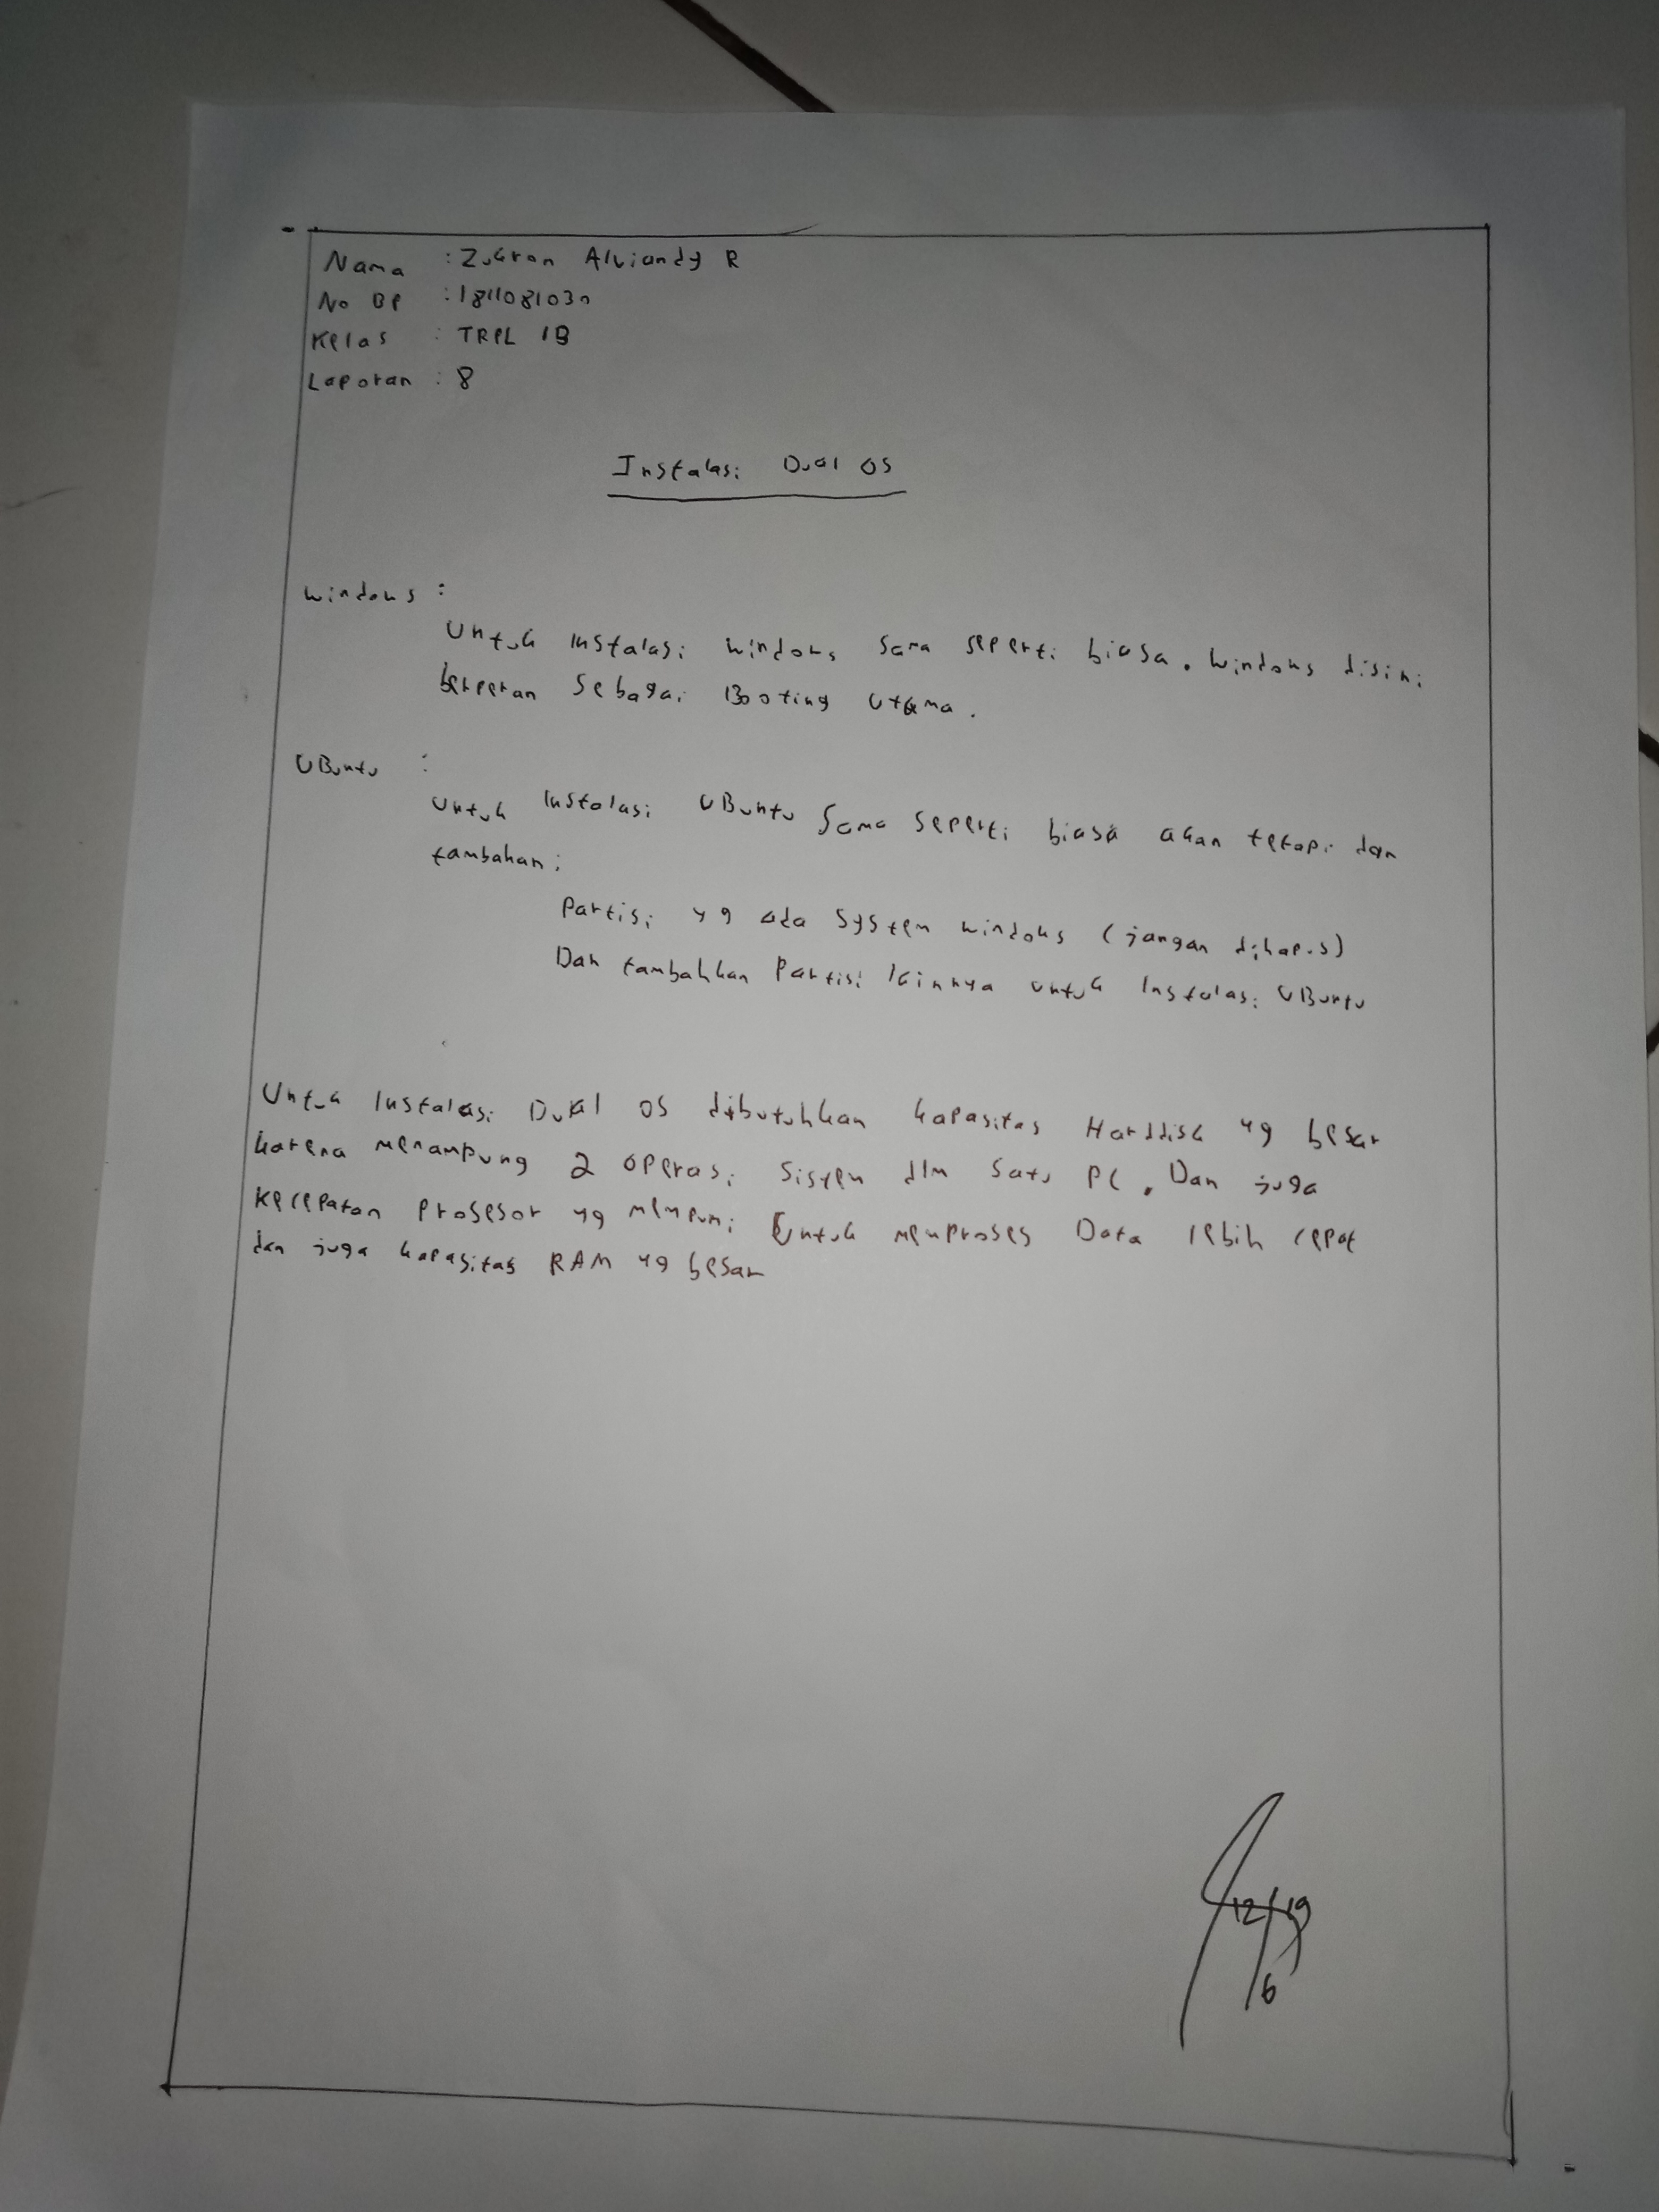 Nama : Zukron Alviandy R
No BP : 1811081030
Kelas : TRPL 1B
Laporan : 8
Instalasi Dual OS
Windows :
Untuk Instalasi Windows Sama seperti biasa. Windows disini
berperan Sebagai Booting Utama.
UBuntu :
Untuk Instalasi UBuntu Sama seperti biasa akan tetapi dan
tambahan :
Partisi yg ada System Windows (jangan dihapus)
Dan tambahkan Partisi lainnya untuk Instalasi UBuntu
Untuk Instalasi Dual OS dibutuhkan kapasitas Harddisk yg besar
karena menampung 2 operasi sistem dlm satu PC. Dan juga
Kecepatan Prosesor yg mempuni Untuk memproses Data lebih cepat
dan juga kapasitas RAM yg besar
12/19
6